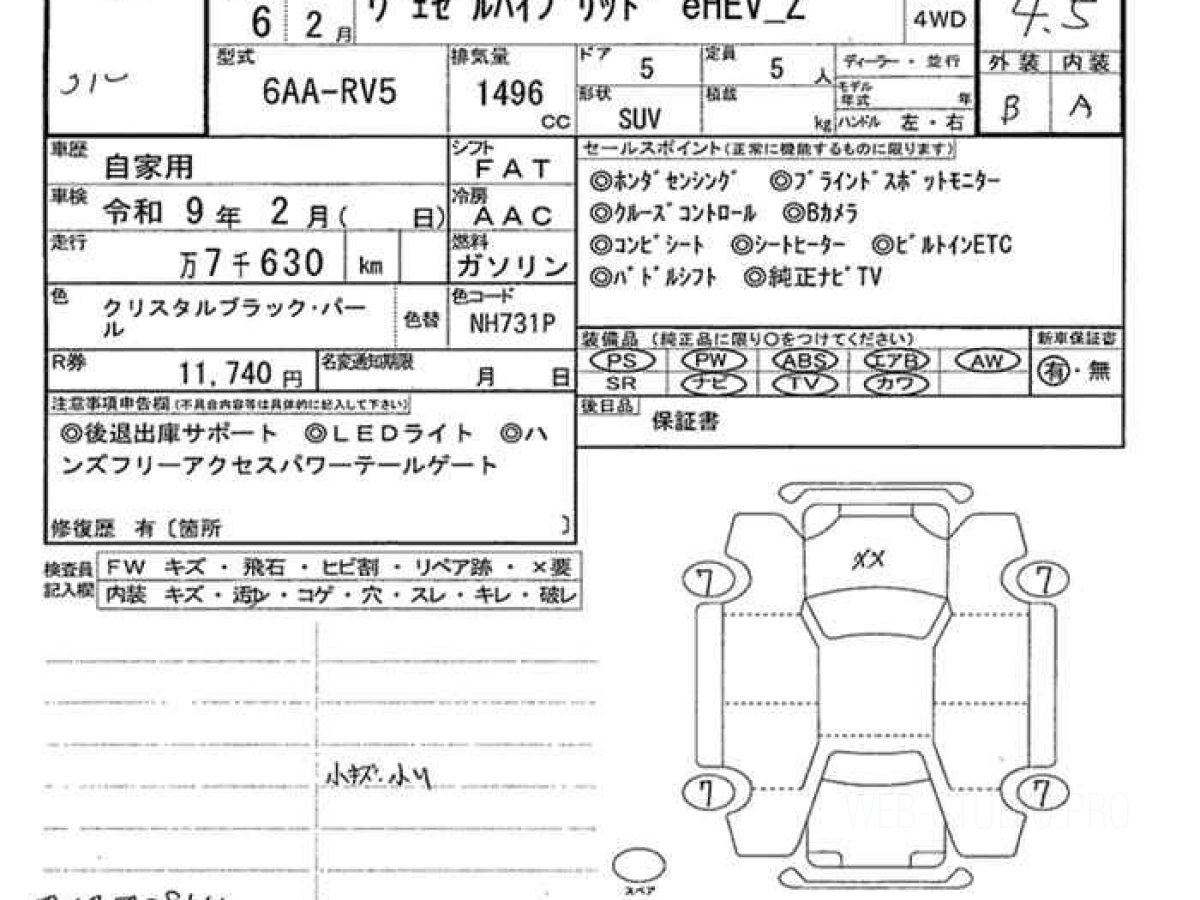 6 2月 ヴェゼルハイブリッド eHEV_Z 4WD 4.5
型式 6AA-RV5 排気量 1496 cc
ドア 5 定員 5 人 ディーラー・並行
形状 SUV 積載 kg モデル年式 年
ハンドル 左・右
外装 内装
B A
車歴 自家用 シフト FAT
車検 令和 9年 2月( 日) 冷房 AAC
走行 万7千630 km 燃料 ガソリン
色 クリスタルブラック・パール 色替 色コード NH731P
R券 11,740円 名変通知期限 月 日
セールスポイント(正常に機能するものに限ります)
◎ホンダセンシング ◎ブラインドスポットモニター
◎クルーズコントロール ◎Bカメラ
◎コンビシート ◎シートヒーター ◎ビルトインETC
◎パドルシフト ◎純正ナビTV
装備品(純正品に限り〇をつけてください) 新車保証書
PS PW ABS エアB AW 有・無
SR ナビ TV カワ
後日品 保証書
注意事項申告欄(不具合内容等は具体的に記入して下さい)
◎後退出庫サポート ◎LEDライト ◎ハ
ンズフリーアクセスパワーテールゲート
修復歴 有〔箇所 〕
検査員記入欄
FW キズ・飛石・ヒビ割・リペア跡・×要
内装 キズ・汚レ・コゲ・穴・スレ・キレ・破レ
メメ
7 7
7 7
小キズ・小U
スペア
WEB-STUDIO.PRO